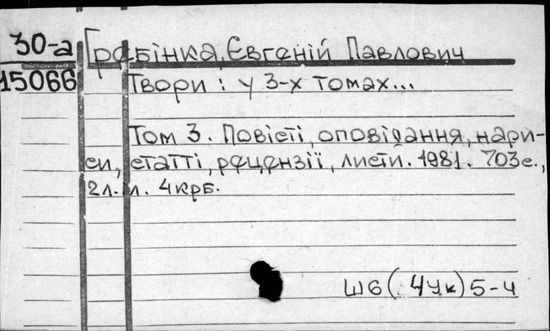 30-а Гребінка, Євгеній Павлович
15066 Твори: у 3-х томах...
Том 3. Повісті, оповідання, нари-
си, статті, рецензії, листи. 1981. 703с.,
2л. іл. 4крб.
Ш6(4Ук)5-4